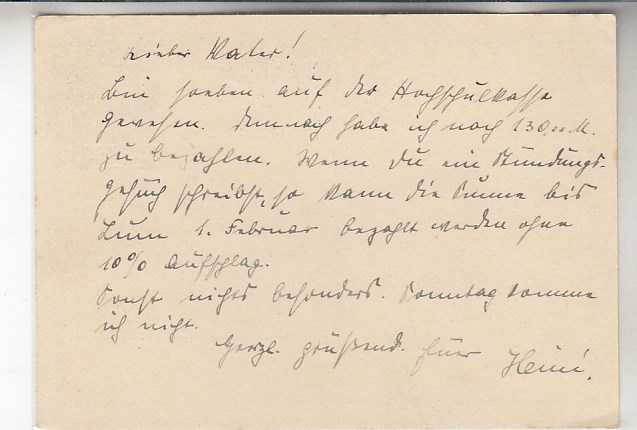 Lieber Vater!
Bin soeben auf der Hochschulkasse
gewesen. Demnach habe ich noch 130,00 M.
zu bezahlen. Wenn Du ein Stundungs-
gesuch schreibst, so kann die Summe bis
zum 1. Februar bezahlt werden ohne
10% Aufschlag.
Sonst nichts besonders. Sonntag komme
ich nicht.
Herzl. grüßend. Euer Heini.